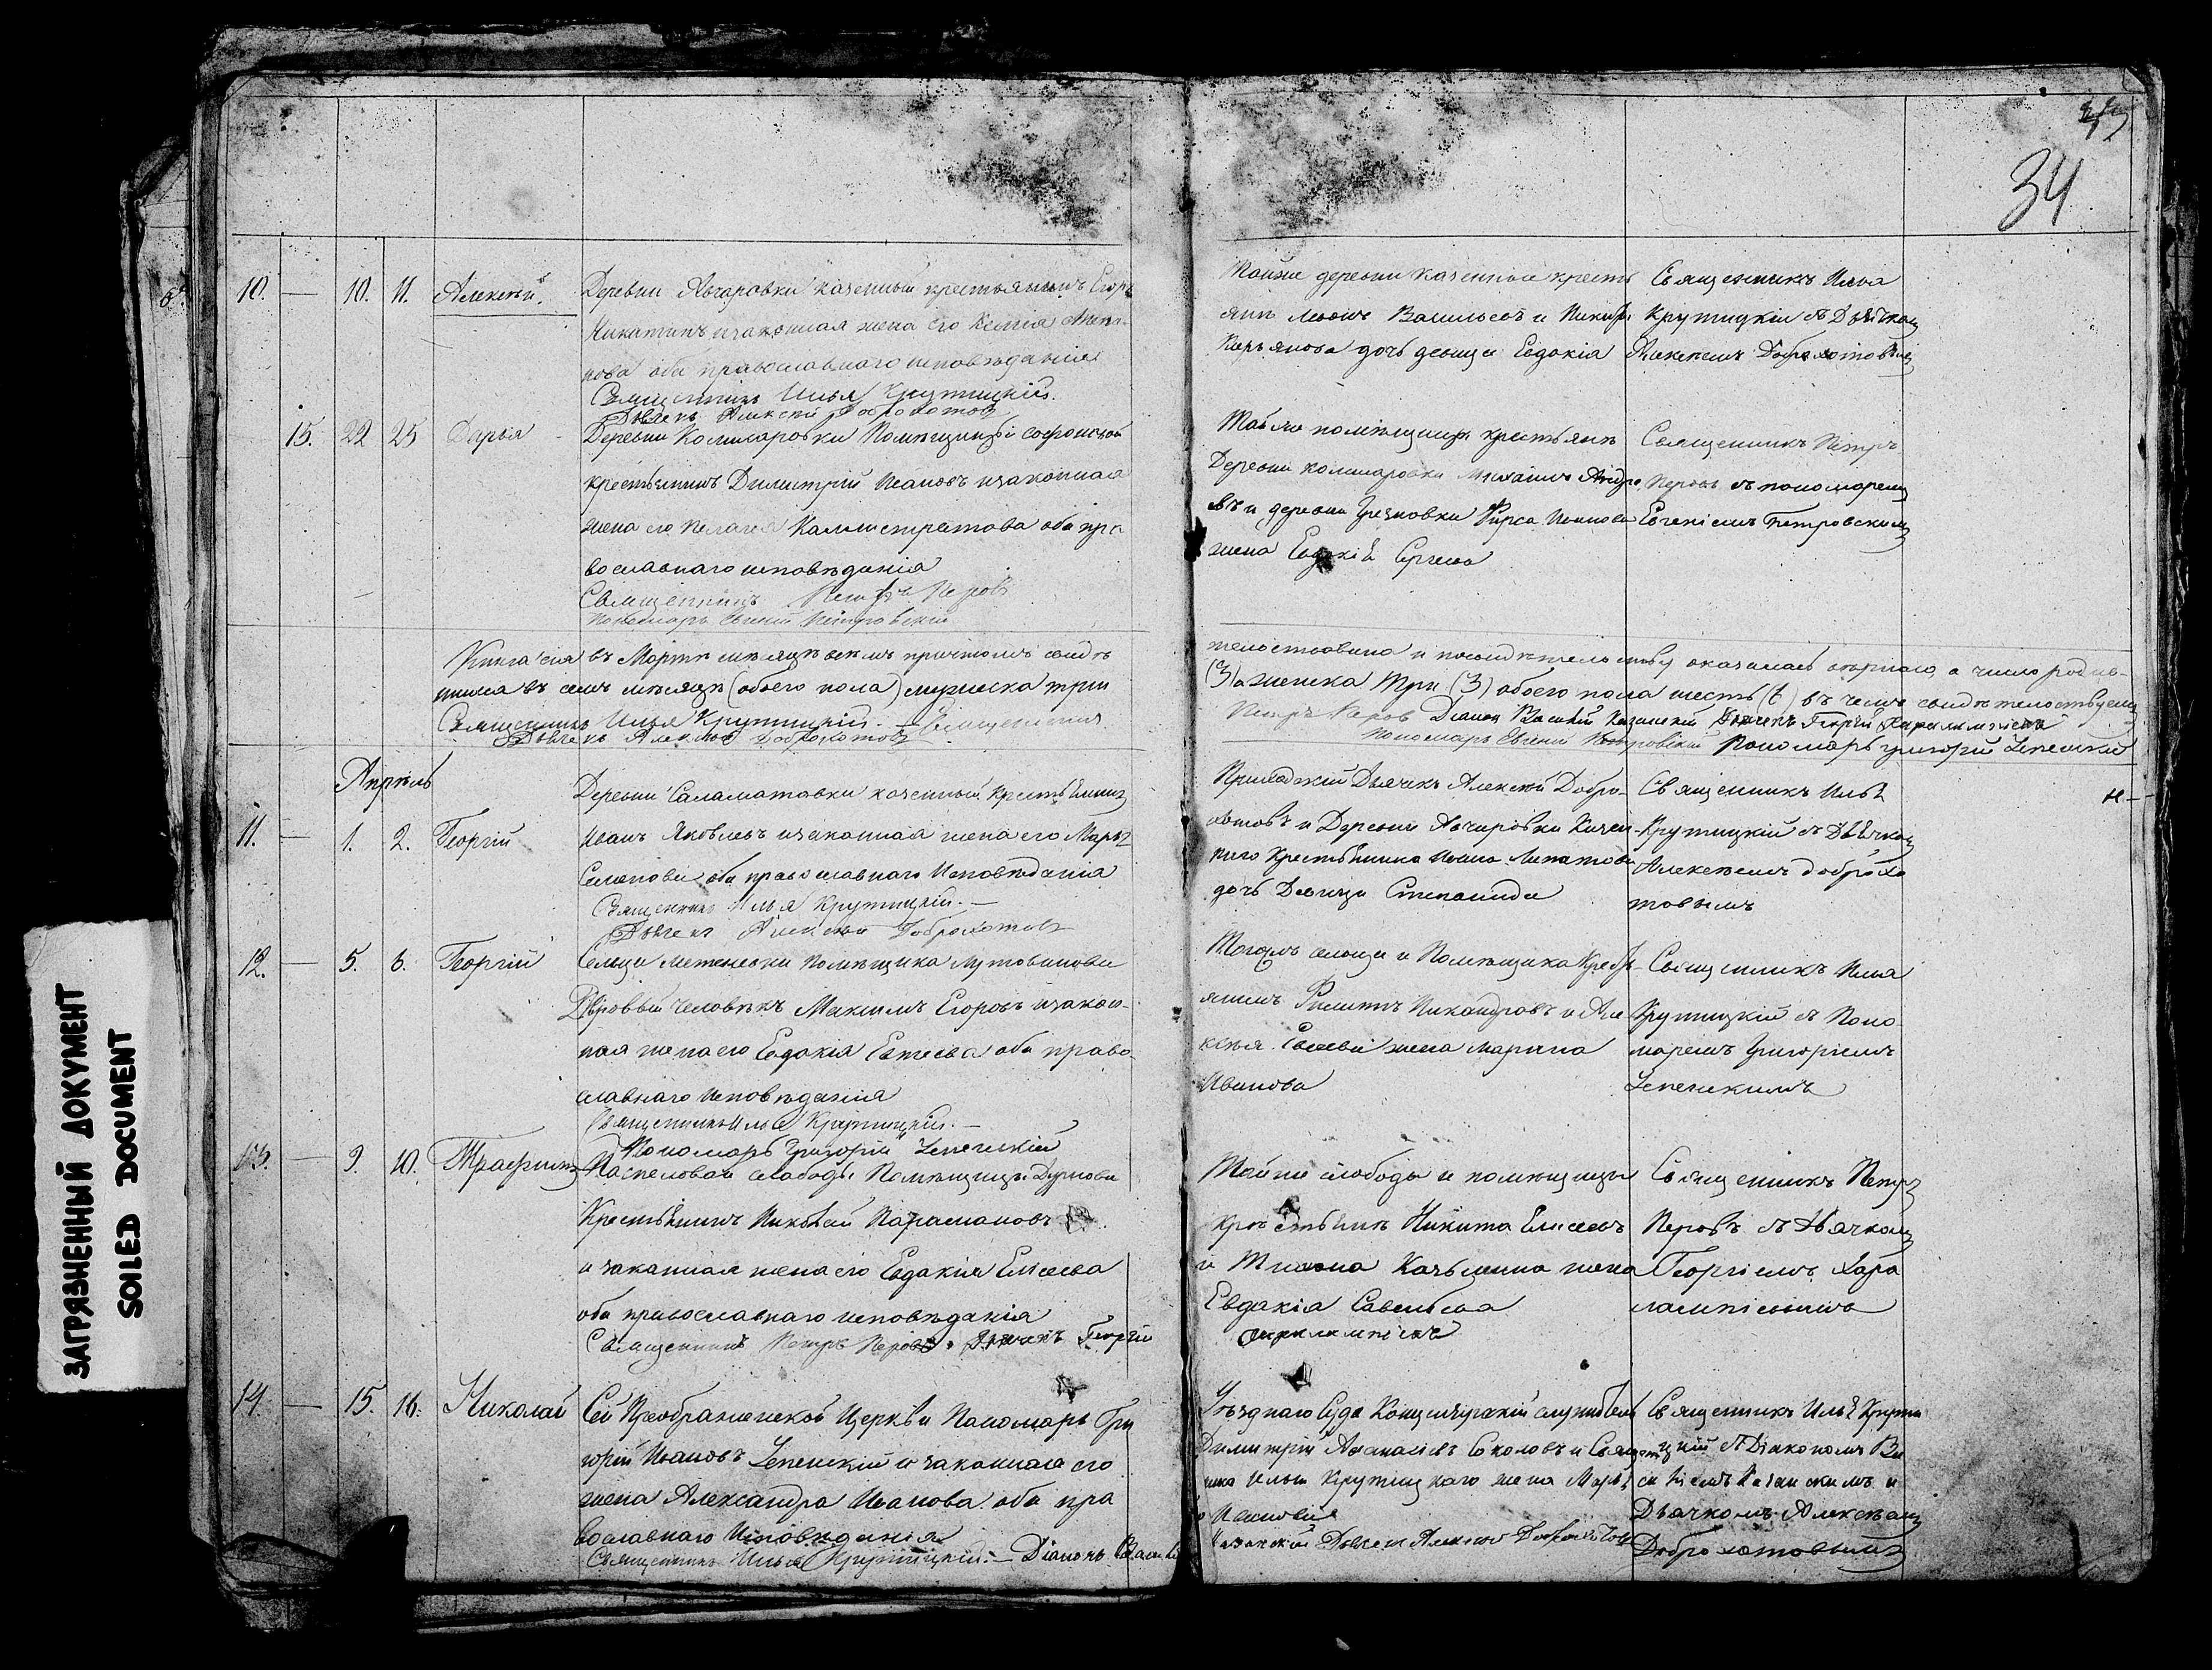 34
10. — 10. 11. Алексѣй.
Деревни Авчаровки казенный крестьянинъ Егоръ
Никитинъ изаконная жена его Ксенія
нова оба православнаго исповѣданія
Священникъ Илья Крутицкій.
Дьячекъ Алексѣй Доброхотовъ
Тойже деревни казенной кресть
янинъ Васильевъ и
дочь девица Евдокія
Священникъ Илья
Крутицкій съ Дьячкомъ
Алексѣемъ Доброхотовымъ
15. 22 25 Дарья
Деревни Комисаровки Помѣщицы
крестьянинъ Димитрій Ивановъ изаконная
жена его Пелагея Каллистратова оба пра
вославнаго исповѣданія
Священникъ Петръ Перовъ
Пономарь Евгеній Петровскій
Тойже помѣщицы крестьянинъ
Деревни комисаровки Михаилъ Андре
въ и деревни Грезновки Фирса Иванова
жена Евдокія Сергеева
Священникъ Петръ
Перовъ съ пономаремъ
Евгеніемъ Петровскимъ
Книга сія въ Мартѣ мѣсяцѣ всемъ причтомъ свидѣ
тельствована и посвидѣтельству оказалась вѣрною, а число родив-
шихся въ семъ мѣсяцѣ (обоего пола) мужеска три
(3) а женска три (3) обоего пола шесть (6) въ чемъ свидѣтельствуемъ
Священникъ Илья Крутицкій. — Священникъ
Петръ Перовъ Діаконъ Василій Казанскій Дьячекъ Георгій Харалампіевъ
Дьячекъ Алексѣй Доброхотовъ
Пономарь Евгеній Петровскій Пономарь Григорій Цепенскій
Апрѣль
11. — 1. 2. Георгій
Деревни Саламатовки казенный крестьянинъ
Иванъ Яковлевъ изаконная жена его Марья
Семенова оба православнаго Исповѣданія
Священникъ Илья Крутицкій. —
Дьячекъ Алексѣй Доброхотовъ
Приходской Дьячекъ Алексѣй Добро-
хотовъ и Деревни Авчаровки Казен-
наго Крестьянина Ивана Липатова
дочь Девица Степанида
Священникъ Илья
Крутицкій съ Дьячкомъ
Алексѣемъ Доброхо
товымъ
12. — 5. 6. Георгій
Сельца Помѣщика Лутовинова
Дворовый человѣкъ Максимъ Егоровъ изакон-
ная жена его Евдокія Евтеева оба право-
славнаго Исповѣданія
Священникъ Илья Крутицкій. —
Пономарь Григорій Цепенскій
Тогожъ сельца и Помѣщика Кресть-
янинъ Филиппъ Никандровъ и Але
ксѣя жена Марина
Иванова
Священникъ Илья
Крутицкій съ Поно
маремъ Григоріемъ
Цепенскимъ
13. — 9. 10. Трафимъ
Паспеловой слабоды Помѣщицы Дурнова
Крестьянинъ Николай Парамановъ
и законная жена его Евдакия Елисеева
оба православнаго исповѣданія
Священникъ Петръ Перовъ. Дьячекъ Георгій
Тойже слободы и помѣщицы
крестьянинъ Никита Елисеевъ
и Тихона Казьмина жена
Евдакія Савельева
Харалампіевъ
Священникъ Петръ
Перовъ съ Дьячкомъ
Георгіемъ Хара
лампіевымъ
14. — 15. 16. Николай
Сей Преображенской Церкви Пономарь Гри
горій Ивановъ Цепенскій и законная его
жена Александра Иванова оба пра
вославнаго Исповѣданія
Священникъ Илья Крутицкій. — Діаконъ Василій
Уѣзднаго Суда Канцелярскій служитель
Димитрій Афанасіевъ Соколовъ и Священ
ника Ильи Крутицкаго жена Марья
Иванова
Казанскій Дьячекъ Алексѣй Доброхотовъ
Священникъ Илья Крути
цкій съ Діакономъ Ва
силіемъ Казанскимъ и
Дьячкомъ Алексѣемъ
Доброхотовымъ
ЗАГРЯЗНЕННЫЙ ДОКУМЕНТ
SOILED DOCUMENT